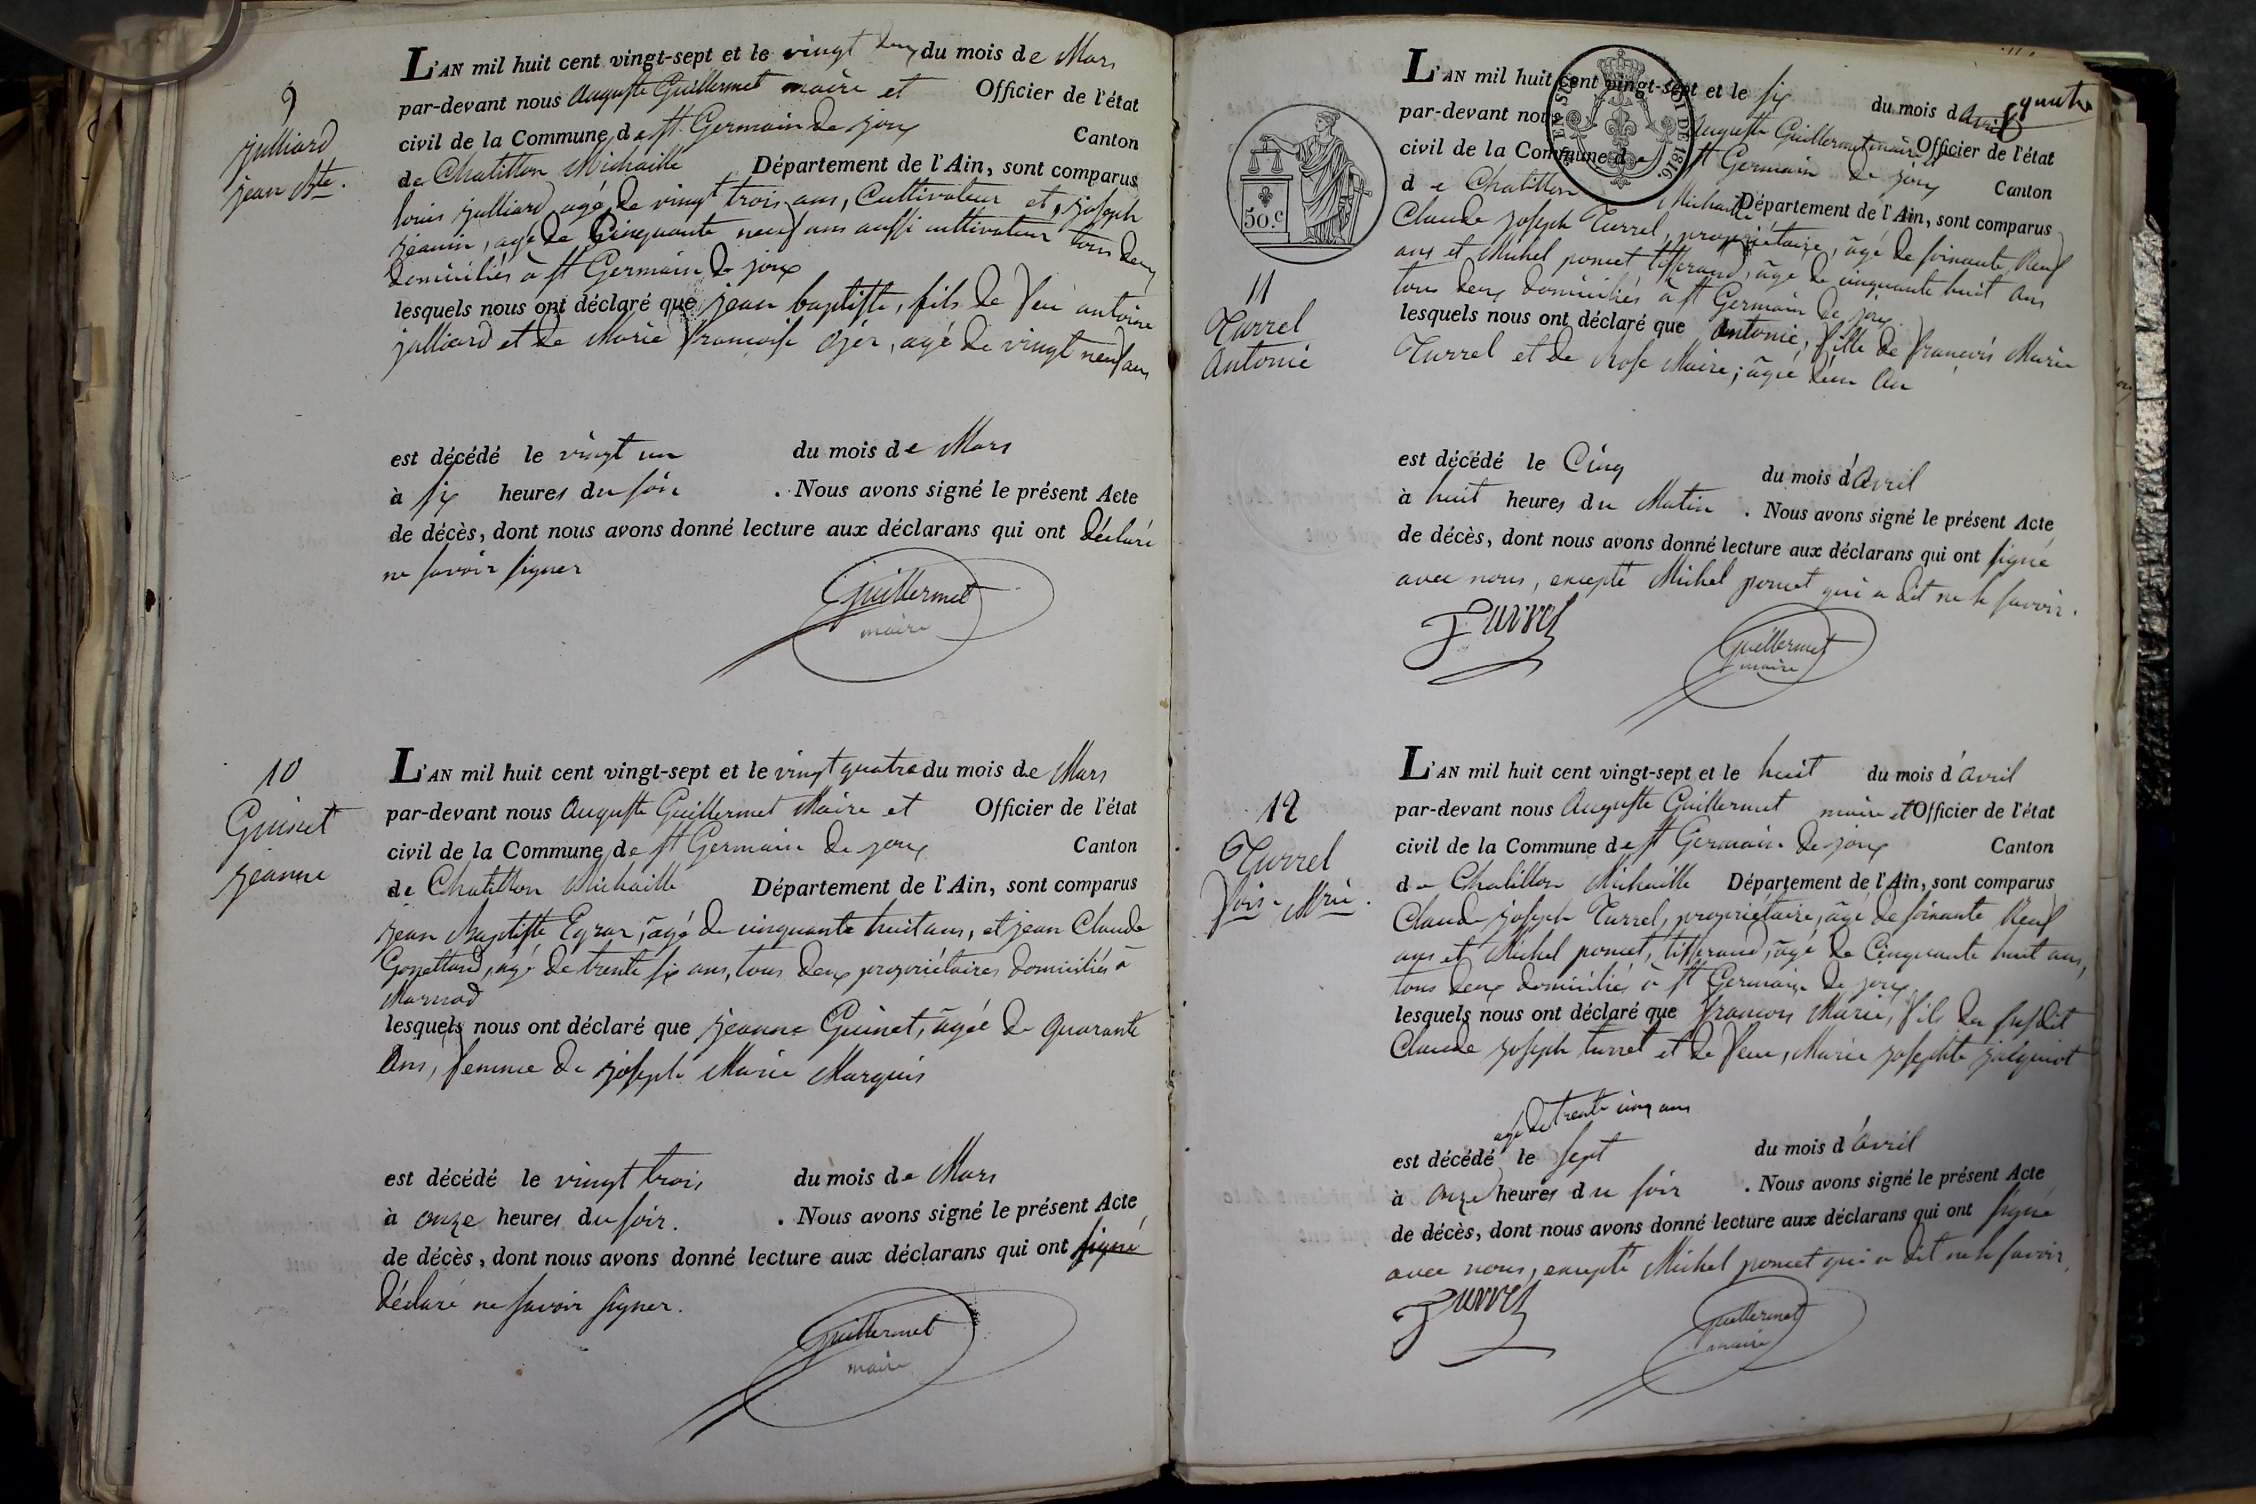 9
Julliard
jean Bte.
L'AN mil huit cent vingt-sept et le vingt deux du mois de Mars
par-devant nous auguste Guillermet maire et Officier de l'état
civil de la Commune de St Germain de joux Canton
de Chatillon Michaille Département de l'Ain, sont comparus
louis julliard agé de vingt trois ans, Cultivateur et joseph
jeanin, agé de Cinquante neuf ans aussi cultivateur tous deux
domiciliés à St Germain de joux
lesquels nous ont déclaré que jean baptiste, fils de feu antoine
julliard et de Marie francoise agé de vingt neuf ans
est décédé le vingt un du mois de Mars
à six heures du soir . Nous avons signé le présent Acte
de décès, dont nous avons donné lecture aux déclarans qui ont déclaré
ne savoir signer
Guillermet
maire
10
Guinet
jeanne
L'AN mil huit cent vingt-sept et le vingt quatre du mois de Mars
par-devant nous auguste Guillermet Maire et Officier de l'état
civil de la Commune de St Germain de joux Canton
de Chatillon Michaille Département de l'Ain, sont comparus
jean Baptiste âgé de cinquante huit ans, et jean Claude
agé de trente six ans, tous deux propriétaires domiciliés à
Marnod
lesquels nous ont déclaré que jeanne Guinet, âgée de quarante
ans, femme de joseph Marie Marquis
est décédé le vingt trois du mois de Mars
à onze heures du soir. . Nous avons signé le présent Acte
de décès, dont nous avons donné lecture aux déclarans qui ont signé
déclaré ne savoir signer.
Guillermet
maire
quatre
50.c
EN SUS
DE 1816.
11
Turrel
Antonie
L'AN mil huit cent vingt-sept et le six du mois d avril
par-devant nous Auguste Guillermet maire Officier de l'état
civil de la Commune de St Germain de joux Canton
de Chatillon Michaille Département de l'Ain, sont comparus
Claude joseph Turrel, propriétaire, âgé de soixante Neuf
ans et Michel poncet tisserand, âgé de cinquante huit ans
tous deux domiciliés à St Germain de joux
lesquels nous ont déclaré que antonie, fille de francois Marie
Turrel et de Rose Maire; âgée d'un an
est décédé le Cinq du mois d'avril
à huit heures du Matin . Nous avons signé le présent Acte
de décès, dont nous avons donné lecture aux déclarans qui ont signé
avec nous, excepté Michel poncet qui a dit ne le savoir.
Turrel
Guillermet
maire
12
Turrel
fois Mrie.
L'AN mil huit cent vingt-sept et le huit du mois d'avril
par-devant nous Auguste Guillermet maire et Officier de l'état
civil de la Commune de St Germain de joux Canton
de Chatillon Michaille Département de l'Ain, sont comparus
Claude joseph Turrel, propriétaire, âgé de soixante Neuf
ans et Michel poncet, tisserand, âgé de Cinquante huit ans,
tous deux domiciliés à St Germain de joux
lesquels nous ont déclaré que francois Marie, fils du susdit
Claude joseph turrel et de feue, Marie josephte
agé de trente cinq ans
est décédé le sept du mois d'avril
à onze heures du soir . Nous avons signé le présent Acte
de décès, dont nous avons donné lecture aux déclarans qui ont signé
avec nous, excepté Michel poncet qui a dit ne le savoir.
Turrel
Guillermet
maire